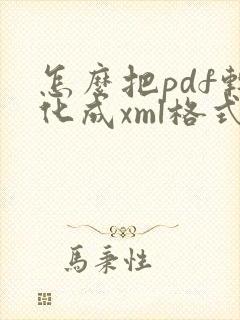 怎麼把pdf轉
化成xml格式
馬秉性